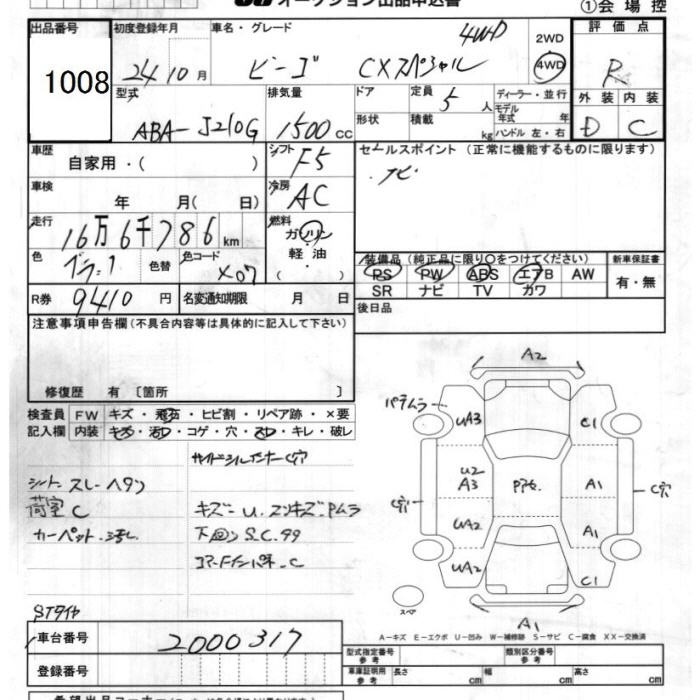 オークション出品申込書
①会場控
出品番号
1008
初度登録年月
24 10 月
車名・グレード
ビーゴ CXスペシャル 4WD
2WD
4WD
評価点
R
外装 内装
D C
型式
ABA-J210G
排気量
1500 cc
ドア
形状
定員 5 人
積載 kg
ディーラー・並行
モデル年式 年
ハンドル 左・右
車歴
自家用・( )
シフト
F5
セールスポイント(正常に機能するものに限ります)
ナビ
車検
年 月( 日)
冷房
AC
走行
16万6千786 km
燃料
ガソリン
軽油
( )
色
色替
色コード
X07
装備品(純正品に限り○をつけてください)
PS PW ABS エアB AW
SR ナビ TV カワ
新車保証書
有・無
R券 9410 円
名変通知期限 月 日
後日品
注意事項申告欄(不具合内容等は具体的に記入して下さい)
修復歴 有〔箇所 〕
検査員記入欄
FW キズ・飛石・ヒビ割・リペア跡・×要
内装 キズ・汚れ・コゲ・穴・スレ・キレ・破レ
シート スレ・ヘタリ
荷室 C
カーペット 汚レ
キズ U
下回り S.C.
STタイヤ
車台番号
2000317
登録番号
A2
UA3
C1
U2
A3
A1
C穴
C穴
UA2
A1
UA2
C1
スペア
A1
A-キズ E-エクボ U-凹み W-補修跡 S-サビ C-腐食 XX-交換済
型式指定番号 参考
類別区分番号 参考
車庫証明用 参考
長さ cm
幅 cm
高さ cm